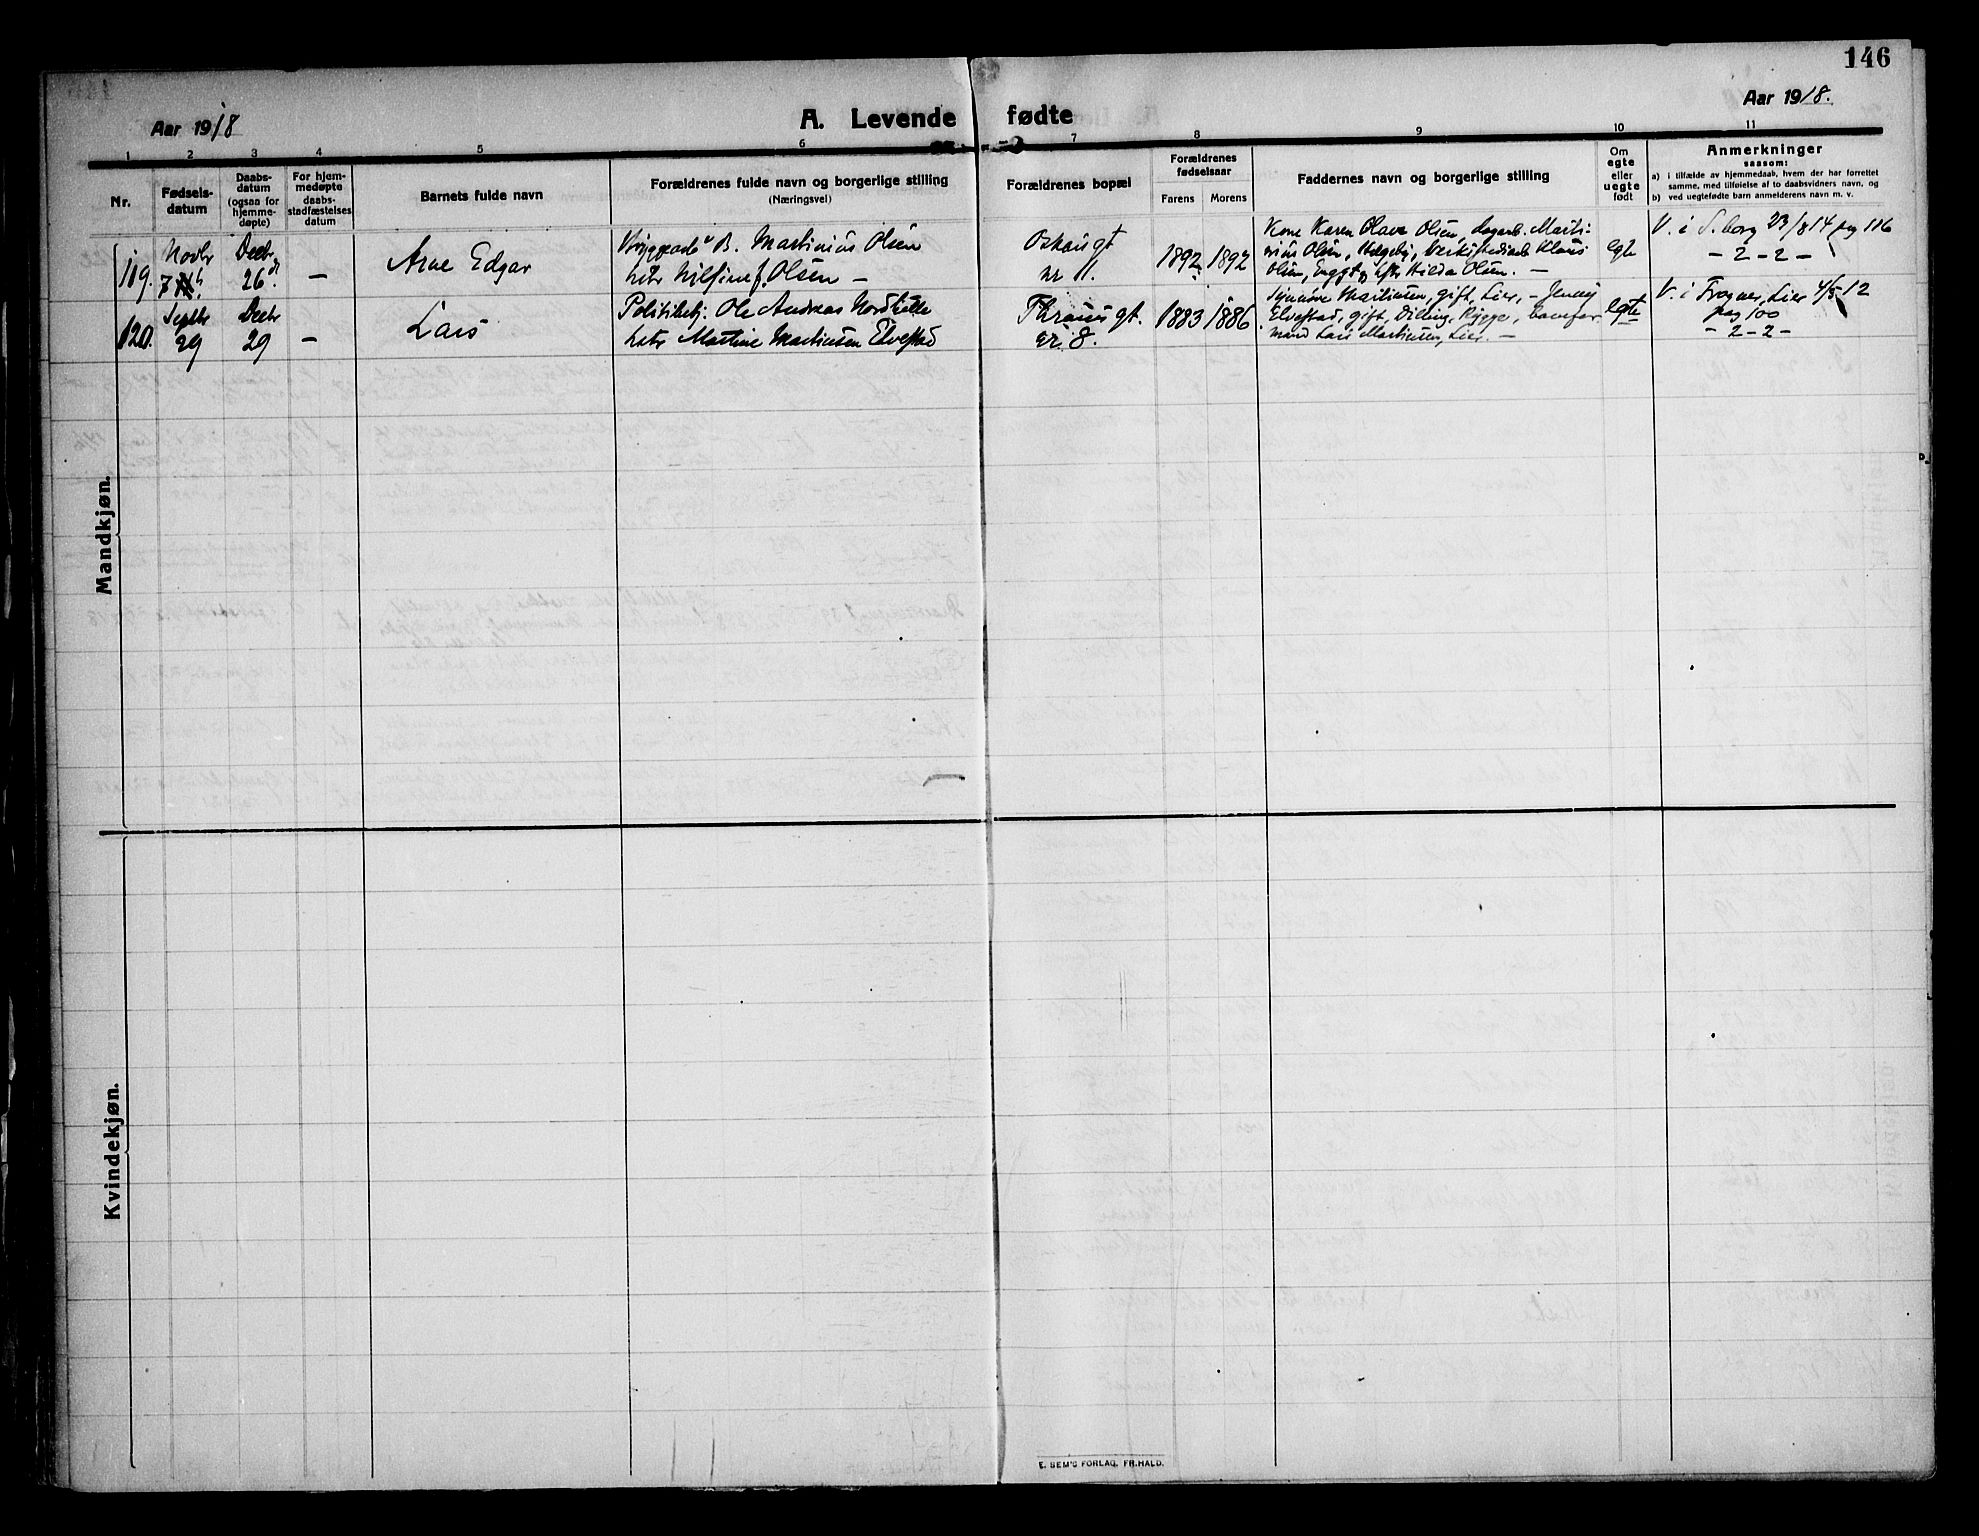 146
Aar 1918
A. Levende fødte
Aar 1918.
1 2 3 4 5 6 7 8 9 10 11
Nr.
Fødsels-
datum
Daabs-
datum
(ogsaa for
hjemme-
døpte)
For hjem-
medøpte
daabs-
stadfæstelses
datum
Barnets fulde navn
Forældrenes fulde navn og borgerlige stilling
(Næringsvei)
Forældrenes bopæl
Forældrenes
fødselsaar
Farens Morens
Faddernes navn og borgerlige stilling
Om
egte
eller
uegte
født
Anmerkninger
saasom:
a) i tilfælde av hjemmedaab, hvem der har forrettet
samme, med tilføielse av to daabsvidners navn, og
b) ved uegtefødte barn anmelderens navn m. v.
Mandkjøn.
119.
Novbr
7
Decbr
26
—
Arne Edgar
B. Martinius Olsen
Olsen —
Oskarsgt
nr 11.
1892 1892
Kone Karen Olava Olsen, dagarb. Marti-
nius Olsen, Klaus
Olsen, Hilda Olsen. —
egte
V. i S.borg 23/8 14 pag 116
- 2 - 2 -
120.
Septbr
29
Decbr
29
—
Lars
Politibetj. Ole Andreas Nordhelle
Martine Martinsen Elvestad
Thranesgt.
nr 8.
1883 1886
Martinsen, gift, Lier, - Jenny
Elvestad, gift, Dilling, Rygge,
mand Lars Martinsen, Lier. —
egte
V. i Frogner, Lier 4/5 12
pag 100
- 2 - 2 -
Kvindekjøn.
E. SEM'S FORLAG, FR.HALD.